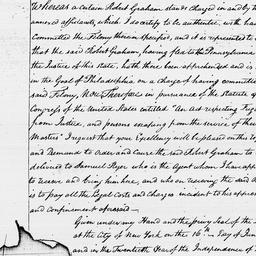 Whereas a certain Robert Graham stands charged in and by the
annexed affidavits, which I do certify to be authentic, with having
Committed the Felony therein specified, and it is represented to
that the said Robert Graham, having fled to the Pennsylvania
the Justice of this State, hath there been apprehended and is
in the Goal of Philadelphia on a charge of having committed
said Felony, Now Therefore in pursuance of the Statute of
Congress of the United States entitled "An Act respecting Fugi
from Justice, and persons escaping from the service of their
Masters" I request that your Excellency will be pleased on this
and Demand to order and Cause the said Robert Graham to
delivered to Samuel who is the Agent whom I have
to receive and bring him here, and who on receiving the said
is to pay all the Legal Costs and charges incident to his app
and confinement aforesaid
Given under my Hand and the privy Seal of the
at the City of New York on the 16th Day of
and in the Twentieth Year of the Independence of